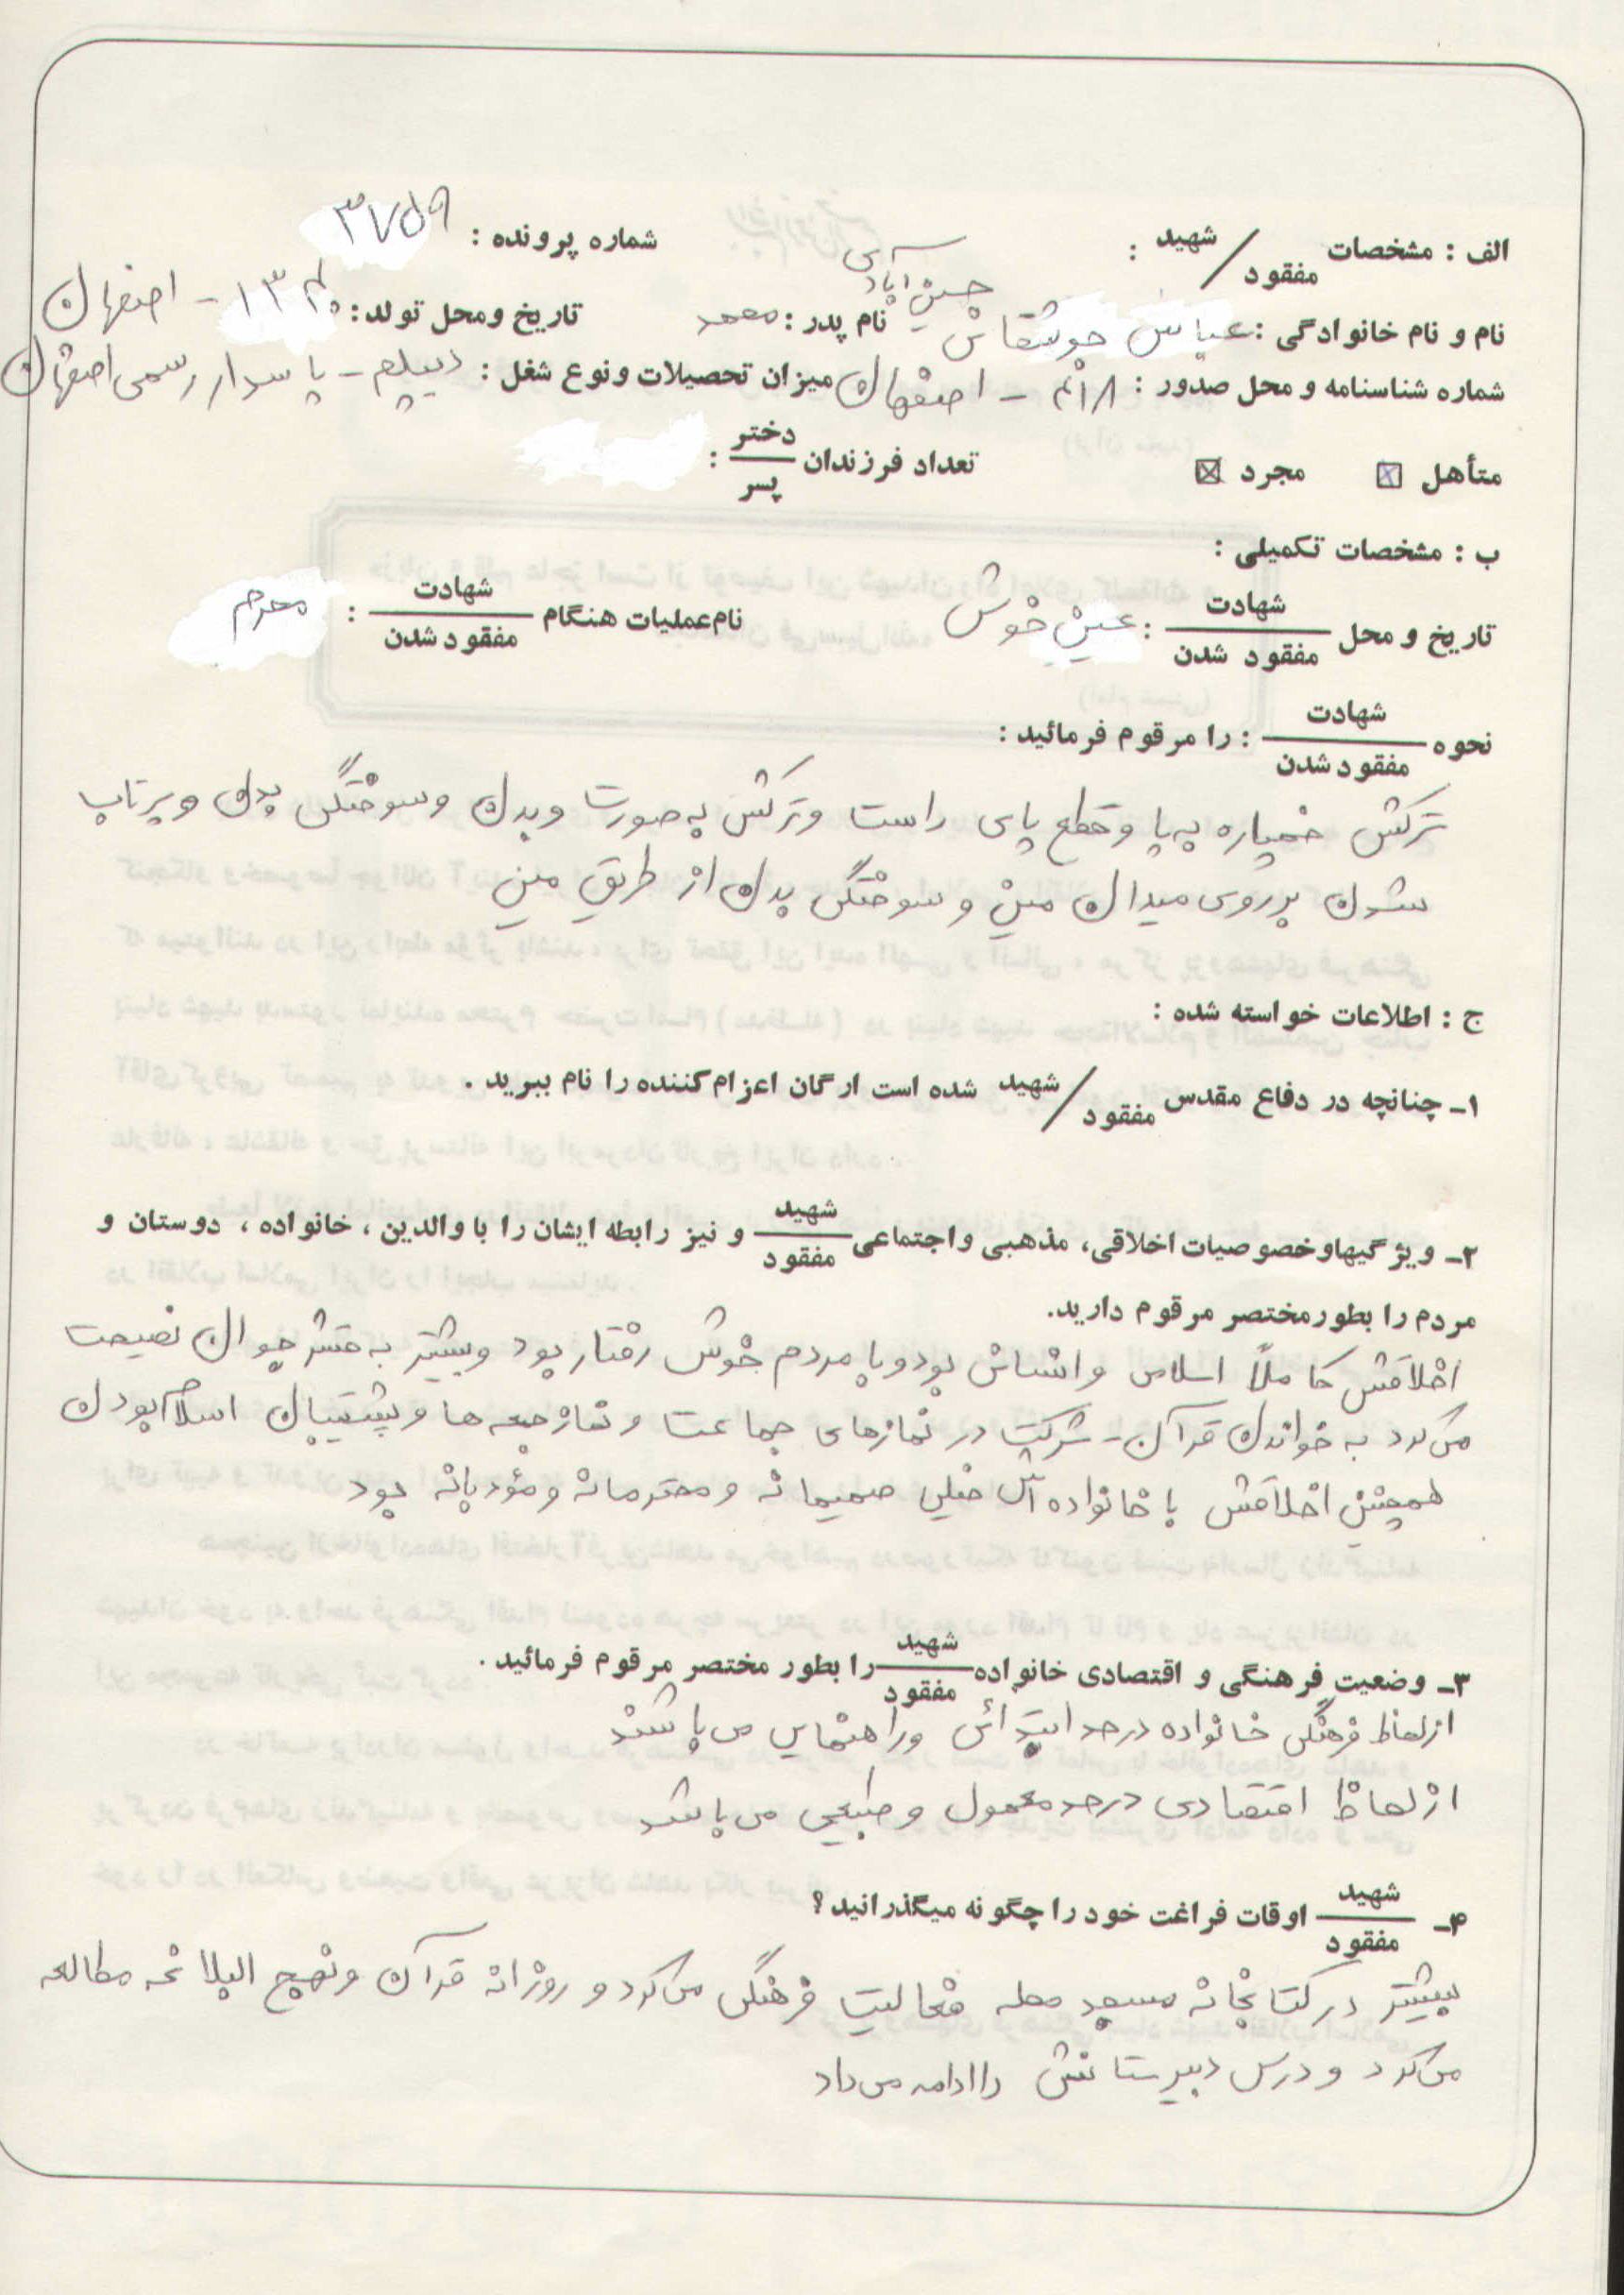 الف : مشخصات شهید / مفقود : شماره پرونده : ۳۷۵۹
حسین آبادی
نام و نام خانوادگی : عباس جوشقانی نام پدر : محمد تاریخ و محل تولد : ۱۳۴۰ - اصفهان
شماره شناسنامه و محل صدور : - اصفهان میزان تحصیلات و نوع شغل : دیپلم - پاسدار رسمی اصفهان
متأهل ☒ مجرد ☒ تعداد فرزندان دختر / پسر :
ب : مشخصات تکمیلی :
تاریخ و محل شهادت / مفقود شدن : عین خوش نام عملیات هنگام شهادت / مفقود شدن : محرم
نحوه شهادت / مفقود شدن : را مرقوم فرمائید :
ترکش خمپاره به پا و قطع پای راست و ترکش به صورت و بدن و سوختگی بدن و پرتاب
شدن بر روی میدان مین و سوختگی بدن از طریق مین
ج : اطلاعات خواسته شده :
۱- چنانچه در دفاع مقدس شهید / مفقود شده است ارگان اعزام کننده را نام ببرید .
۲- ویژگیها و خصوصیات اخلاقی، مذهبی و اجتماعی شهید / مفقود و نیز رابطه ایشان را با والدین ، خانواده ، دوستان و
مردم را بطور مختصر مرقوم دارید.
اخلاقش کاملاً اسلامی و انسانی بود و با مردم خوش رفتار بود و بیشتر به قشر جوان نصیحت
می کرد به خواندن قرآن - شرکت در نمازهای جماعت و نماز جمعه ها و پشتیبان اسلام بودن
همچنین اخلاقش با خانواده اش خیلی صمیمانه و محترمانه و مؤدبانه بود
۳- وضعیت فرهنگی و اقتصادی خانواده شهید / مفقود را بطور مختصر مرقوم فرمائید .
از لحاظ فرهنگی خانواده در حد ابتدائی و راهنمایی می باشند
از لحاظ اقتصادی در حد معمول و طبیعی می باشد
۴- شهید / مفقود اوقات فراغت خود را چگونه میگذرانید ؟
بیشتر در کتابخانه مسجد محله فعالیت فرهنگی می کرد و روزانه قرآن و نهج البلاغه مطالعه
می کرد و درس دبیرستانش را ادامه می داد